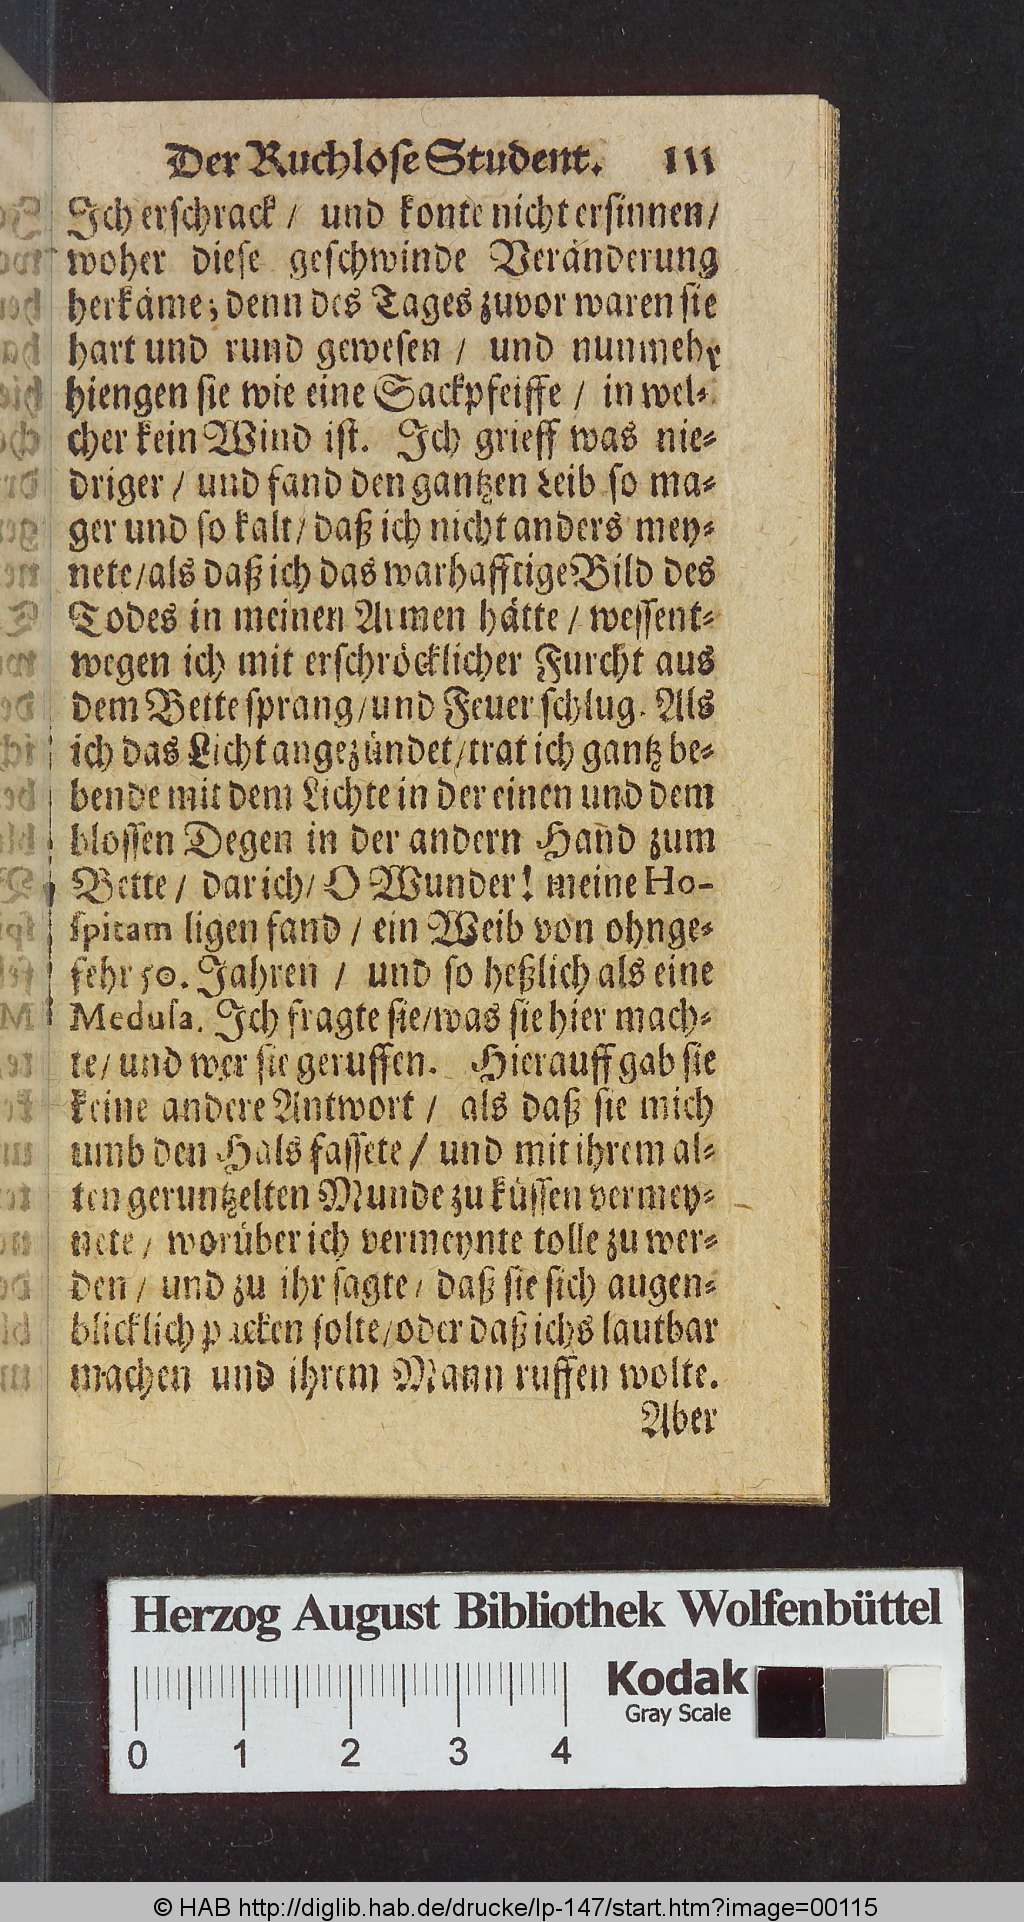 Der Ruchlose Student. 111
Ich erschrack / und konte nicht ersinnen /
woher diese geschwinde Veränderung
herkäme; denn des Tages zuvor waren sie
hart und rund gewesen / und nunmehr
hiengen sie wie eine Sackpfeiffe / in wel-
cher kein Wind ist. Ich grieff was nie-
driger / und fand den gantzen Leib so ma-
ger und so kalt / daß ich nicht anders mey-
nete / als daß ich das warhafftige Bild des
Todes in meinen Armen hätte / wessent-
wegen ich mit erschröcklicher Furcht aus
dem Bette sprang / und Feuer schlug. Als
ich das Licht angezündet / trat ich gantz be-
bende mit dem Lichte in der einen und dem
blossen Degen in der andern Hand zum
Bette / dar ich / O Wunder! meine Ho-
spitam ligen fand / ein Weib von ohnge-
fehr 50. Jahren / und so heßlich als eine
Medusa. Ich fragte sie / was sie hier mach-
te / und wer sie geruffen. Hierauff gab sie
keine andere Antwort / als daß sie mich
umb den Hals fassete / und mit ihrem al-
ten geruntzelten Munde zu küssen vermey-
nete / worüber ich vermeynte tolle zu wer-
den / und zu ihr sagte / daß sie sich augen-
blicklich packen solte / oder daß ichs lautbar
machen und ihrem Mann ruffen wolte.
Aber
Herzog August Bibliothek Wolfenbüttel
Kodak
Gray Scale
0 1 2 3 4
© HAB http://diglib.hab.de/drucke/lp-147/start.htm?image=00115